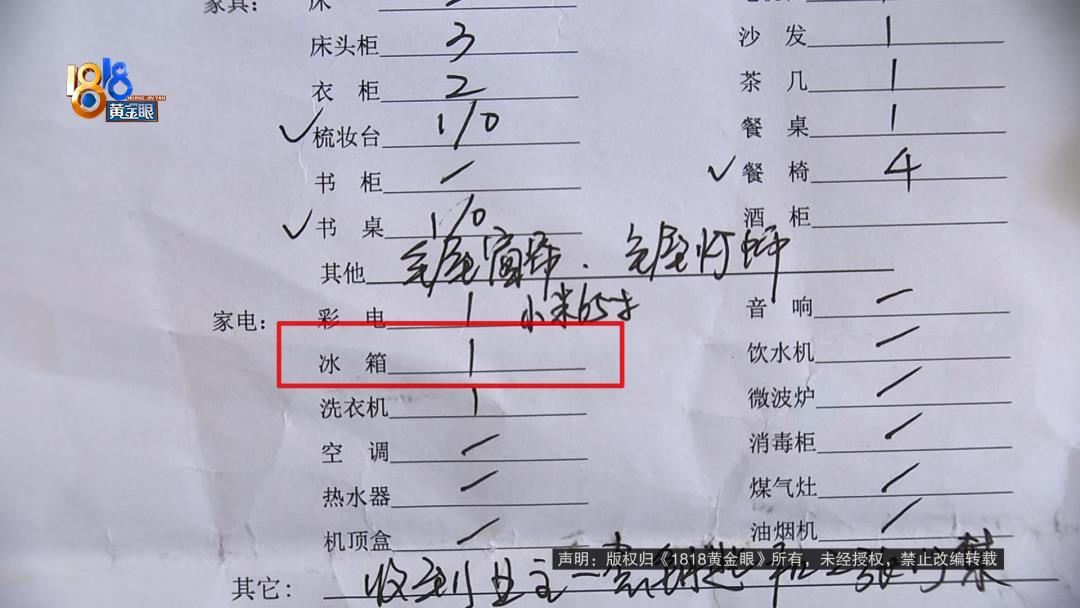 家具： 床
床头柜 3 沙 发 1
1818 黄金眼
HUANG JIN YAN
衣 柜 2 茶 几 1
✓梳妆台 1/0 餐 桌 1
书 柜 / ✓餐 椅 4
✓书 桌 1/0 酒 柜
其他 全屋窗帘．全屋灯
家电： 彩 电 1 小米65寸 音 响 /
冰 箱 1 饮水机 /
洗衣机 1 微波炉 /
空 调 / 消毒柜 /
热水器 / 煤气灶 /
机顶盒 / 油烟机 /
声明：版权归《1818黄金眼》所有，未经授权，禁止改编转载
其它： 收到业主一套钥匙和一张门禁